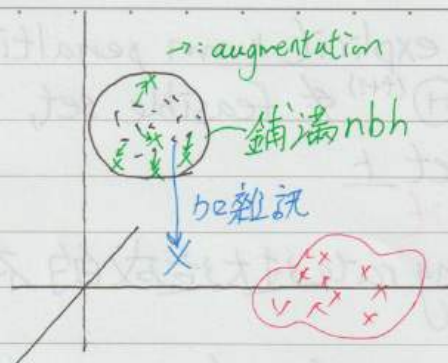 →: augmentation
鋪滿nbh
加雜訊